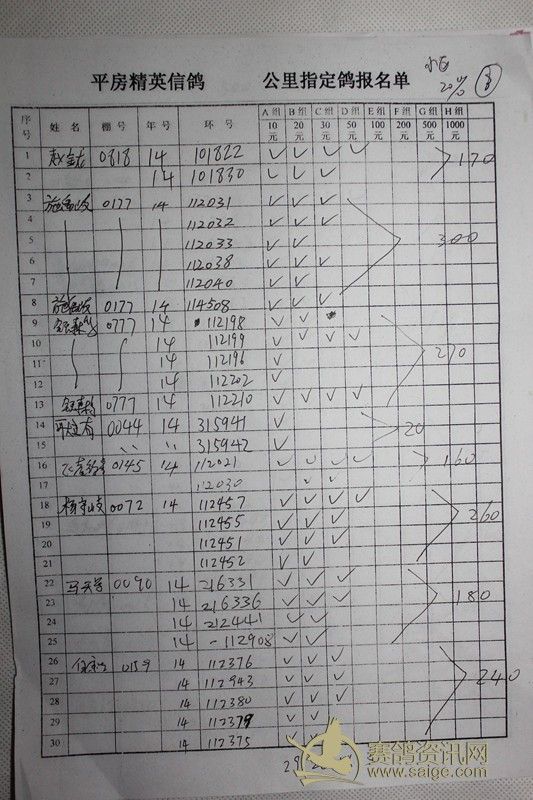 平房精英信鸽 公里指定鸽报名单 8
序号 姓名 棚号 年号 环号 A组10元 B组20元 C组30元 D组50元 E组100元 F组200元 G组500元 H组1000元
1 0818 14 101822 ✓ ✓ ✓ ✓ 170
2 14 101830 ✓ ✓ ✓
3 0177 14 112031 ✓ ✓ ✓
4 112032 ✓ ✓ ✓
5 112033 ✓ ✓ 300
6 112038 ✓ ✓ ✓
7 112040 ✓ ✓
8 0177 14 114508 ✓ ✓ ✓
9 0777 14 112198 ✓ ✓
10 14 112199 ✓ ✓ ✓ ✓
11 14 112196 ✓ 270
12 14 112202 ✓
13 0777 14 112210 ✓ ✓ ✓ ✓
14 0044 14 315941 ✓ 20
15 315942 ✓
16 0145 14 112021 ✓ ✓ ✓ ✓ 160
17 112030 ✓ ✓
18 0072 14 112457 ✓ ✓ ✓ ✓
19 112455 ✓ ✓ ✓ 260
20 112451 ✓ ✓ ✓
21 112452 ✓ ✓
22 0090 14 216331 ✓ ✓ ✓
23 14 216336 ✓ ✓ ✓ 180
24 14 212441 ✓ ✓
25 14 112908 ✓ ✓
26 0159 14 112376 ✓ ✓ ✓
27 14 112943 ✓ ✓ ✓ 240
28 14 112380 ✓ ✓ ✓
29 14 112379 ✓ ✓
30 14 112375 ✓ ✓
赛鸽资讯网
www.saige.com